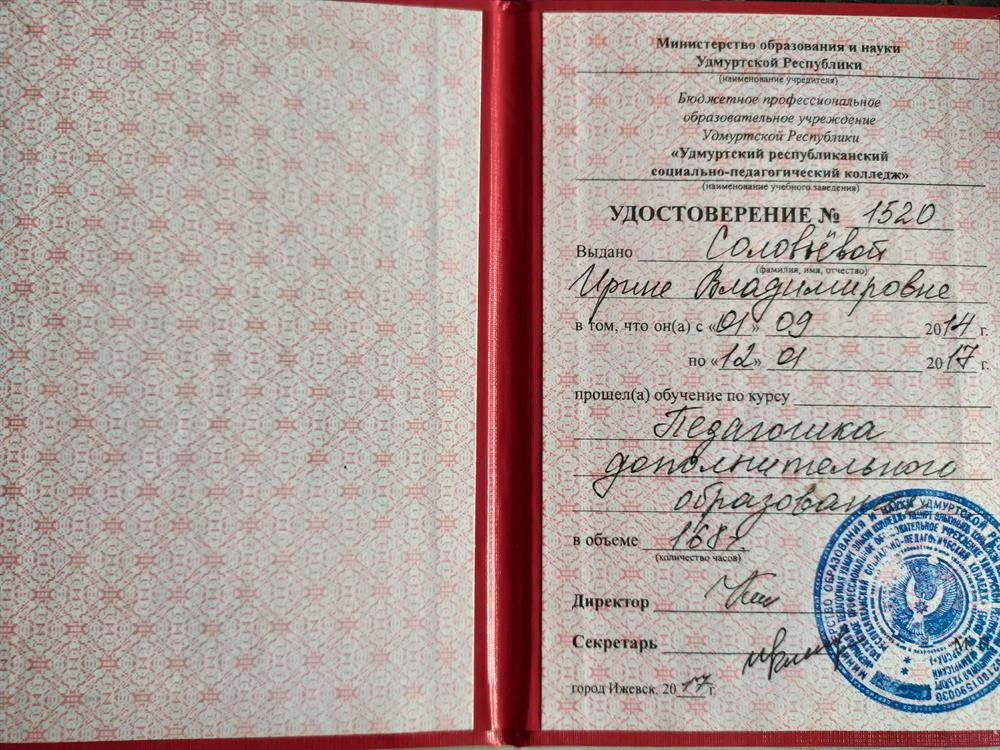 Министерство образования и науки
Удмуртской Республики
(наименование учредителя)
Бюджетное профессиональное
образовательное учреждение
Удмуртской Республики
«Удмуртский республиканский
социально-педагогический колледж»
(наименование учебного заведения)
УДОСТОВЕРЕНИЕ № 1520
Выдано Соловьёвой
(фамилия, имя, отчество)
Ирине Владимировне
в том, что он(а) с «01» 09 2014 г.
по «12» 01 2017 г.
прошел(а) обучение по курсу
Педагогика
дополнительного
образования
в объеме 168ч
(количество часов)
Директор
Секретарь
город Ижевск, 2017г.